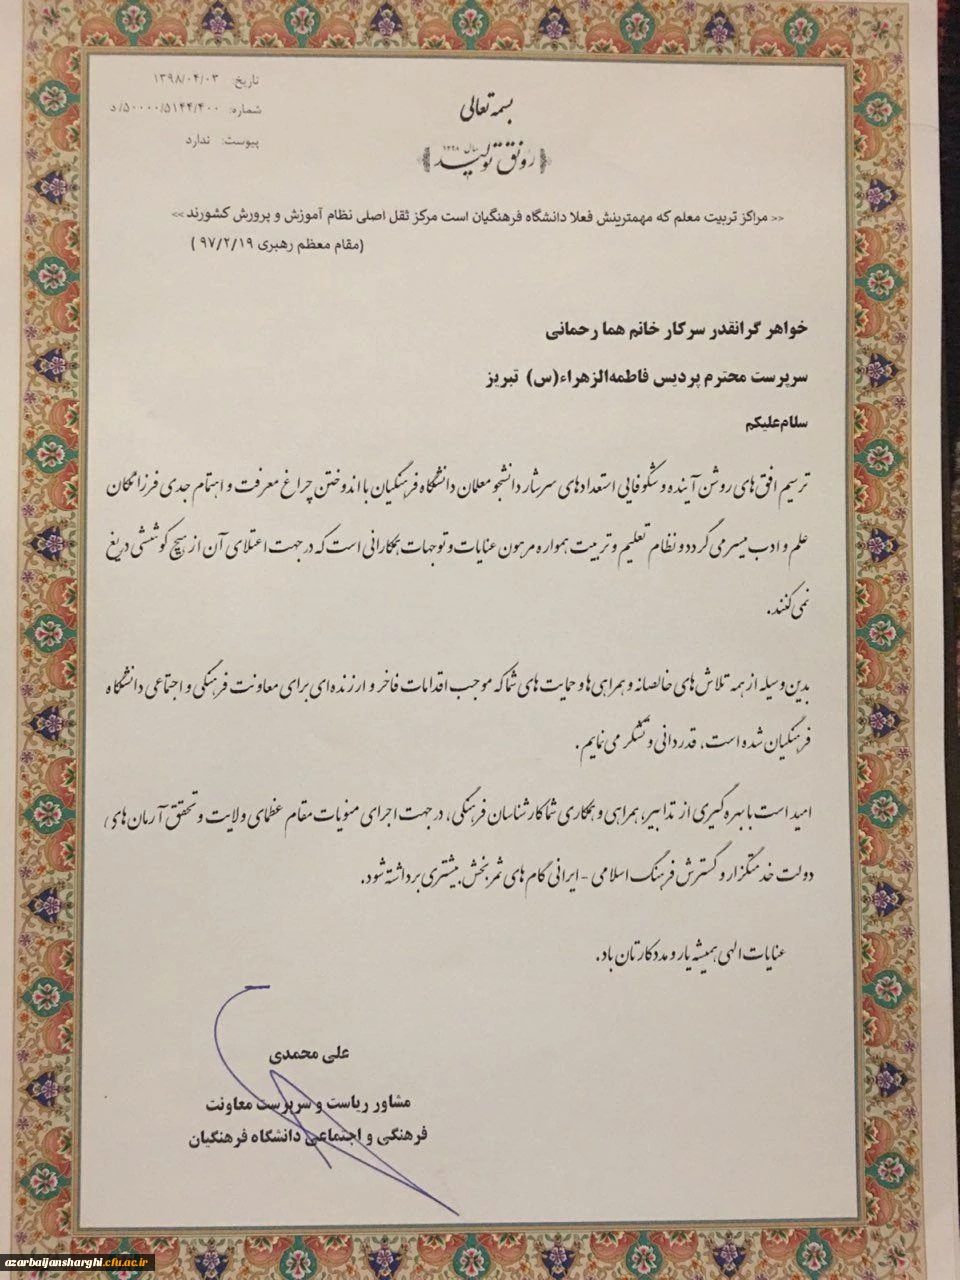 تاریخ: ۱۳۹۸/۰۴/۰۳
شماره: ۵۰۰۰۰/۵۱۴۴/۴۰۰/د
پیوست: ندارد
بسمه تعالی
سال ۱۳۹۸
رونق تولید
<< مراکز تربیت معلم که مهمترینش فعلا دانشگاه فرهنگیان است مرکز ثقل اصلی نظام آموزش و پرورش کشورند >>
(مقام معظم رهبری ۹۷/۲/۱۹ )
خواهر گرانقدر سرکار خانم هما رحمانی
سرپرست محترم پردیس فاطمه‌الزهراء(س) تبریز
سلام‌علیکم
ترسیم افق های روشن آینده و شکوفایی استعدادهای سرشار دانشجو معلمان دانشگاه فرهنگیان با اندوختن چراغ معرفت و اهتمام جدی فرزانگان
علم و ادب میسر می گردد و نظام تعلیم و تربیت همواره مرهون عنایات و توجهات همکارانی است که در جهت اعتلای آن از هیچ کوششی دریغ
نمی کنند.
بدین وسیله از همه تلاش های خالصانه و همراهی ها و حمایت های شما که موجب اقدامات فاخر و ارزنده ای برای معاونت فرهنگی و اجتماعی دانشگاه
فرهنگیان شده است، قدردانی و تشکر می نمایم.
امید است با بهره گیری از تدابیر، همراهی و همکاری شما کارشناسان فرهنگی، در جهت اجرای منویات مقام عظمای ولایت و تحقق آرمان های
دولت خدمتگزار و گسترش فرهنگ اسلامی - ایرانی گام های ثمربخش بیشتری برداشته شود.
عنایات الهی همیشه یار و مددکارتان باد.
علی محمدی
مشاور ریاست و سرپرست معاونت
فرهنگی و اجتماعی دانشگاه فرهنگیان
azarbaijansharghi.cfu.ac.ir